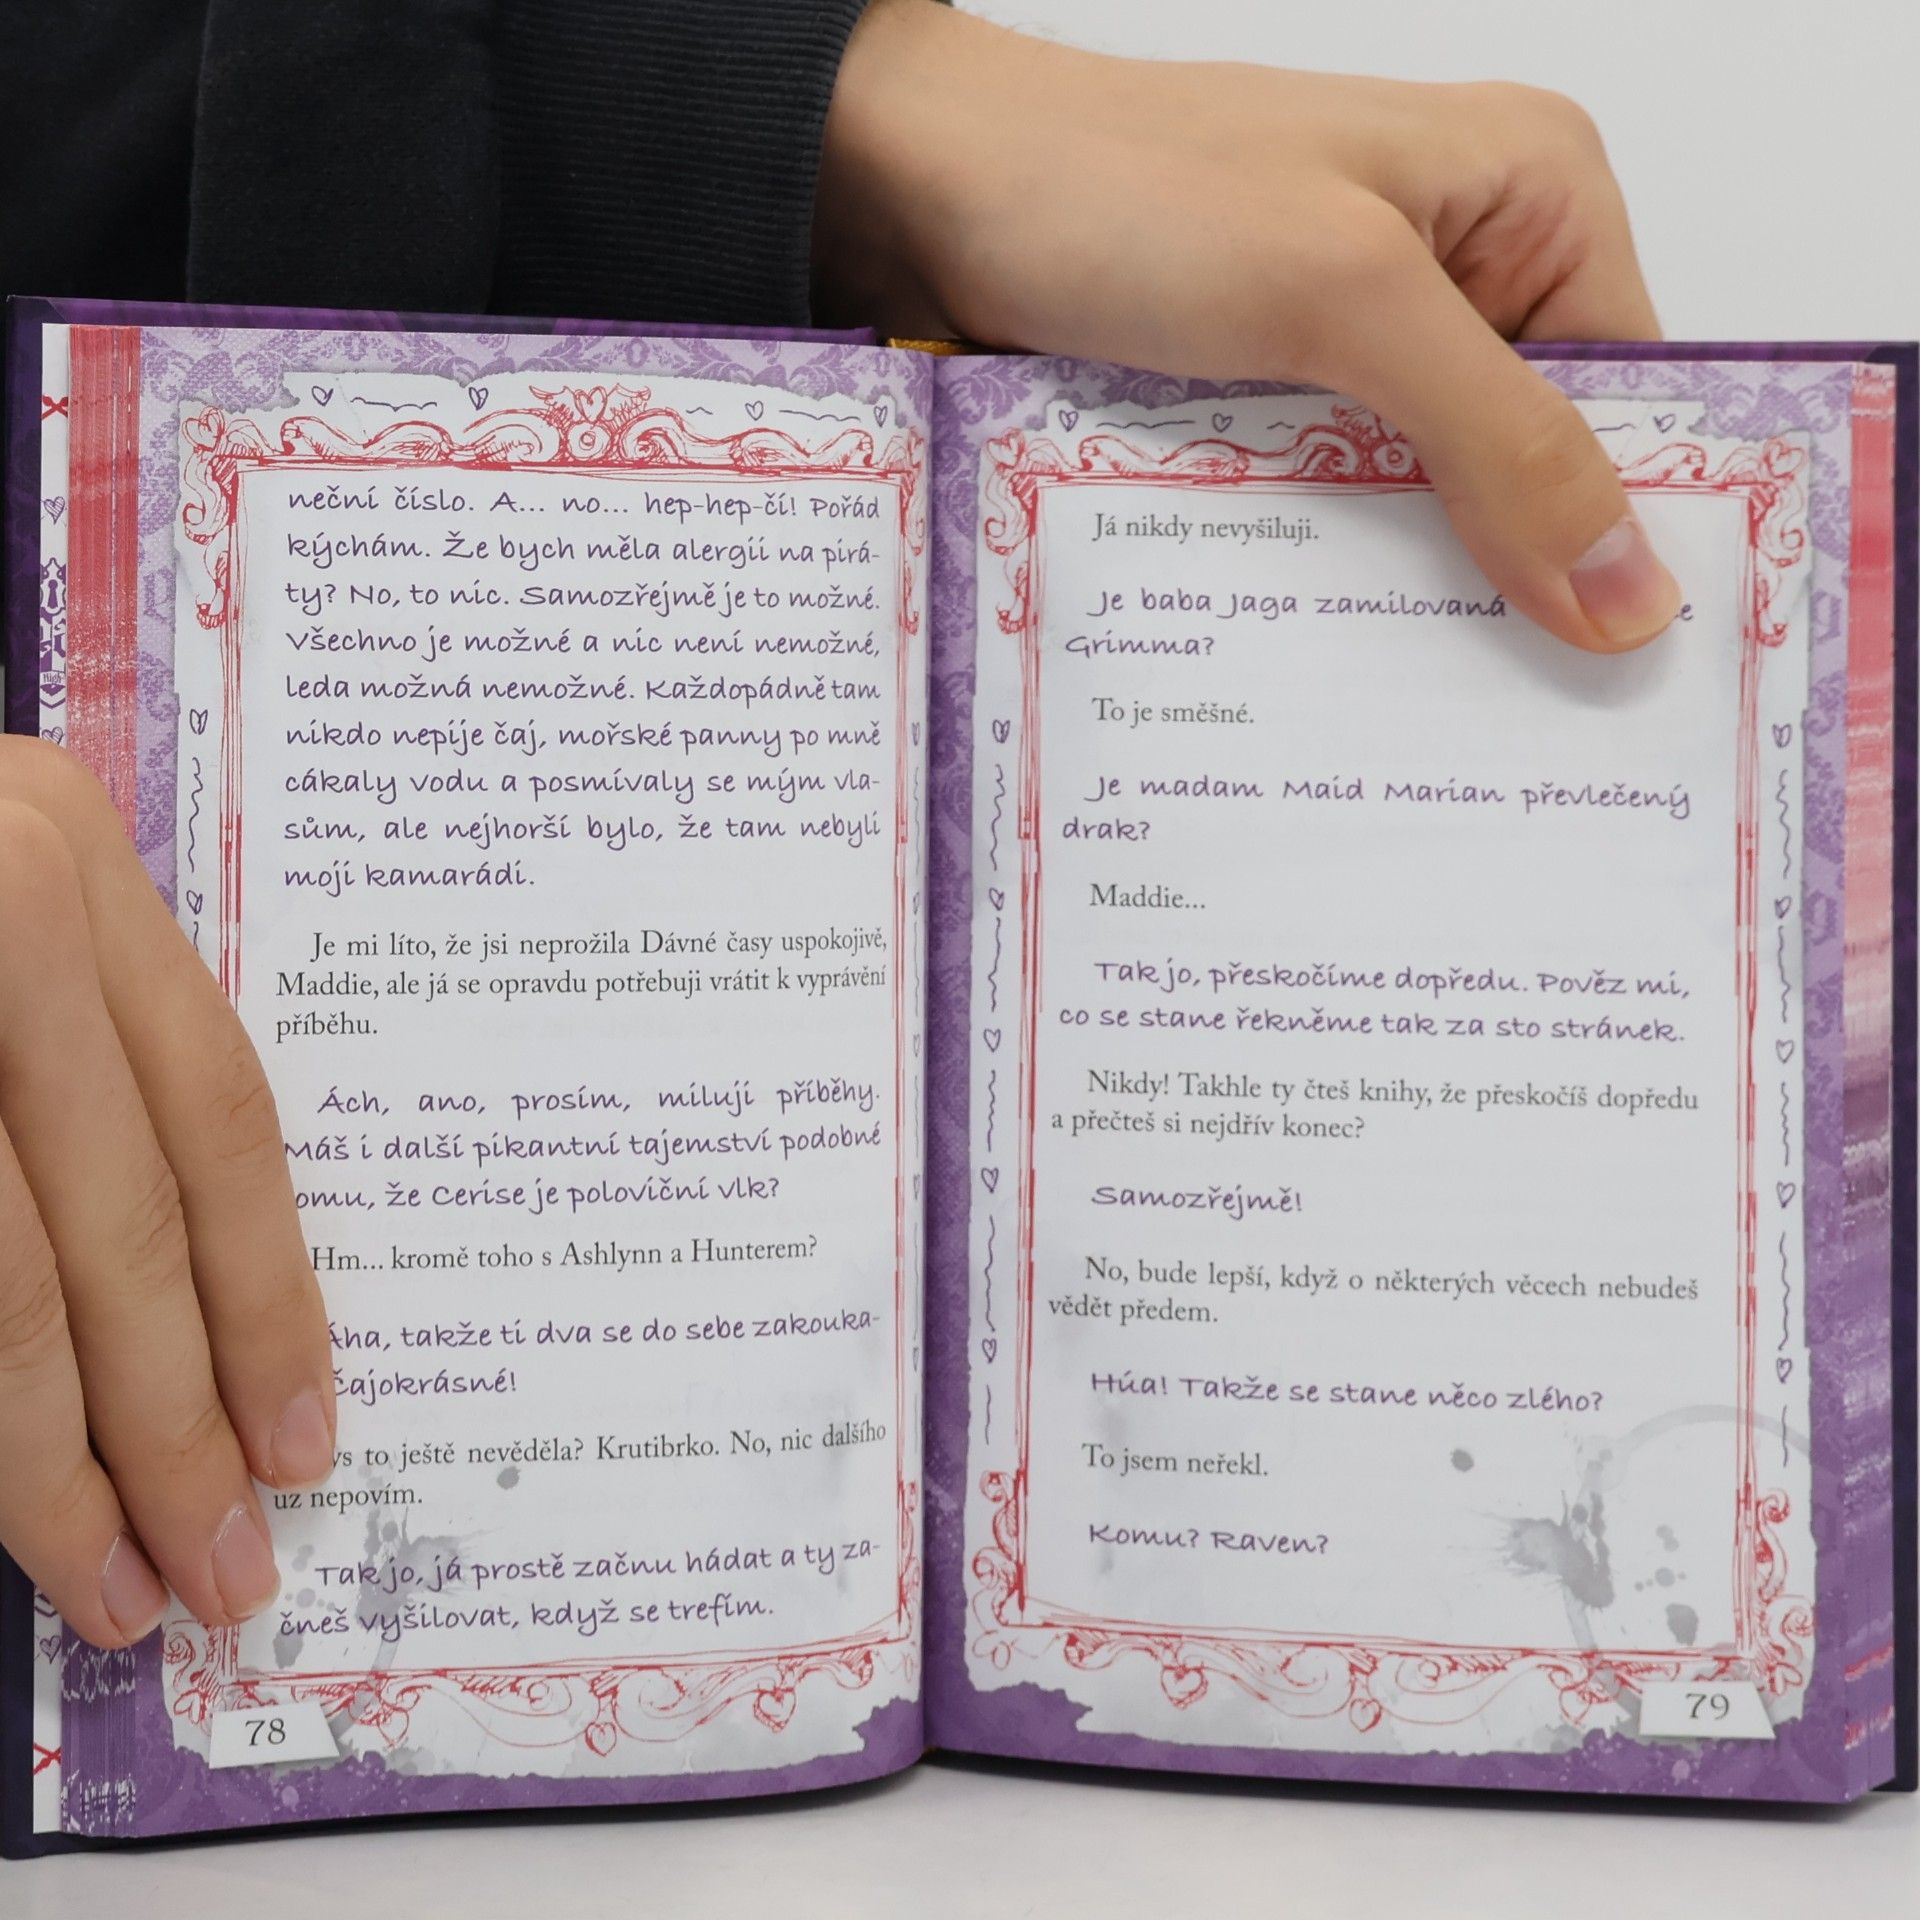 neční číslo. A... no... hep-hep-čí! Pořád
kýchám. Že bych měla alergii na pirá-
ty? No, to nic. Samozřejmě je to možné.
Všechno je možné a nic není nemožné,
leda možná nemožné. Každopádně tam
nikdo nepije čaj, mořské panny po mně
cákaly vodu a posmívaly se mým vla-
sům, ale nejhorší bylo, že tam nebyli
moji kamarádi.
Je mi líto, že jsi neprožila Dávné časy uspokojivě,
Maddie, ale já se opravdu potřebuji vrátit k vyprávění
příběhu.
Ách, ano, prosím, miluji příběhy.
Máš i další pikantní tajemství podobné
omu, že Cerise je poloviční vlk?
Hm... kromě toho s Ashlynn a Hunterem?
Áha, takže ti dva se do sebe zakouka-
čajokrásné!
ys to ještě nevěděla? Krutibrko. No, nic dalšího
už nepovím.
Tak jo, já prostě začnu hádat a ty za-
čneš vyšilovat, když se trefím.
78
Já nikdy nevyšiluji.
Je baba Jaga zamilovaná
Grimma?
To je směšné.
Je madam Maid Marian převlečený
drak?
Maddie...
Tak jo, přeskočíme dopředu. Pověz mi,
co se stane řekněme tak za sto stránek.
Nikdy! Takhle ty čteš knihy, že přeskočíš dopředu
a přečteš si nejdřív konec?
Samozřejmě!
No, bude lepší, když o některých věcech nebudeš
vědět předem.
Húa! Takže se stane něco zlého?
To jsem neřekl.
Komu? Raven?
79